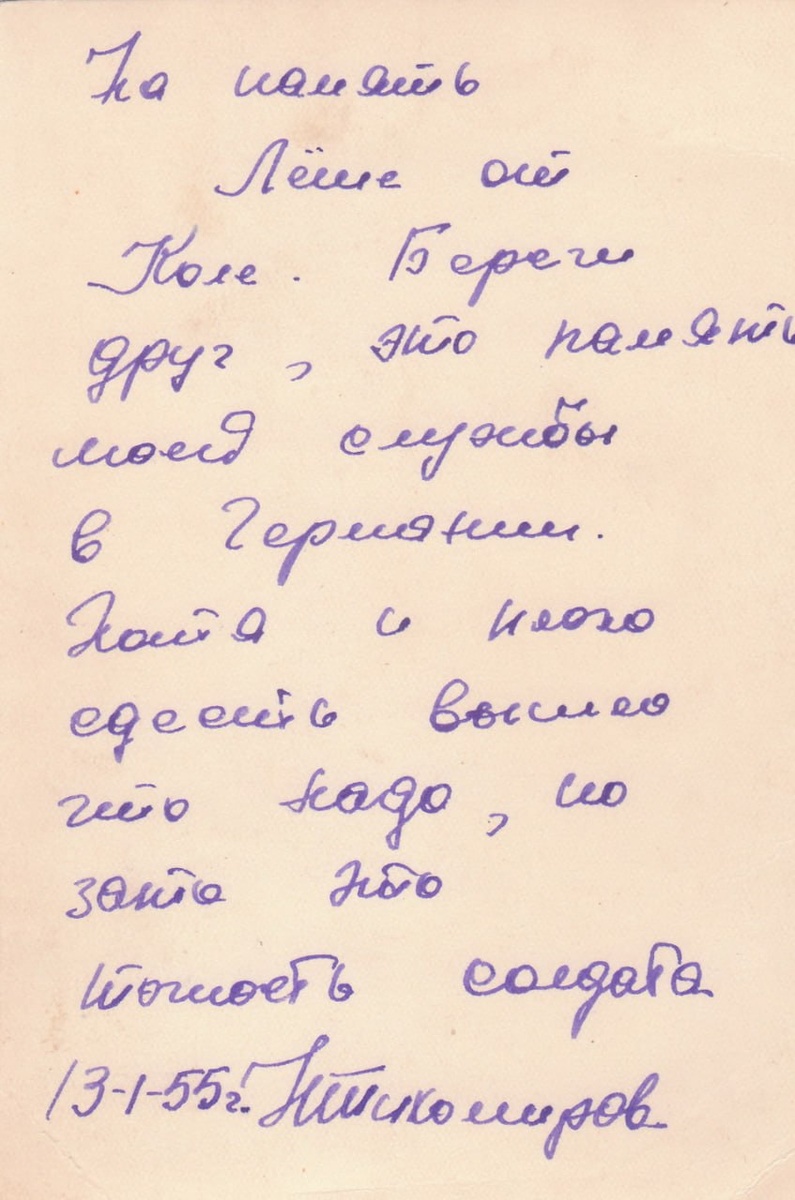 На память
Лёше от
Коле. Береги
друг, это память
моей службы
в Германии.
Хотя и плохо
сдесить вышло
что надо, но
зато это
точность солдата
13-1-55г. НТихомиров